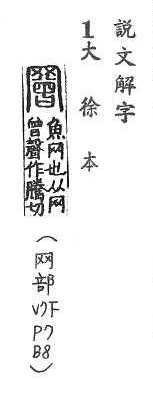 説文解字
1大徐本
罾
魚网也从网
曾聲作騰切
(网部V7下P7B8)